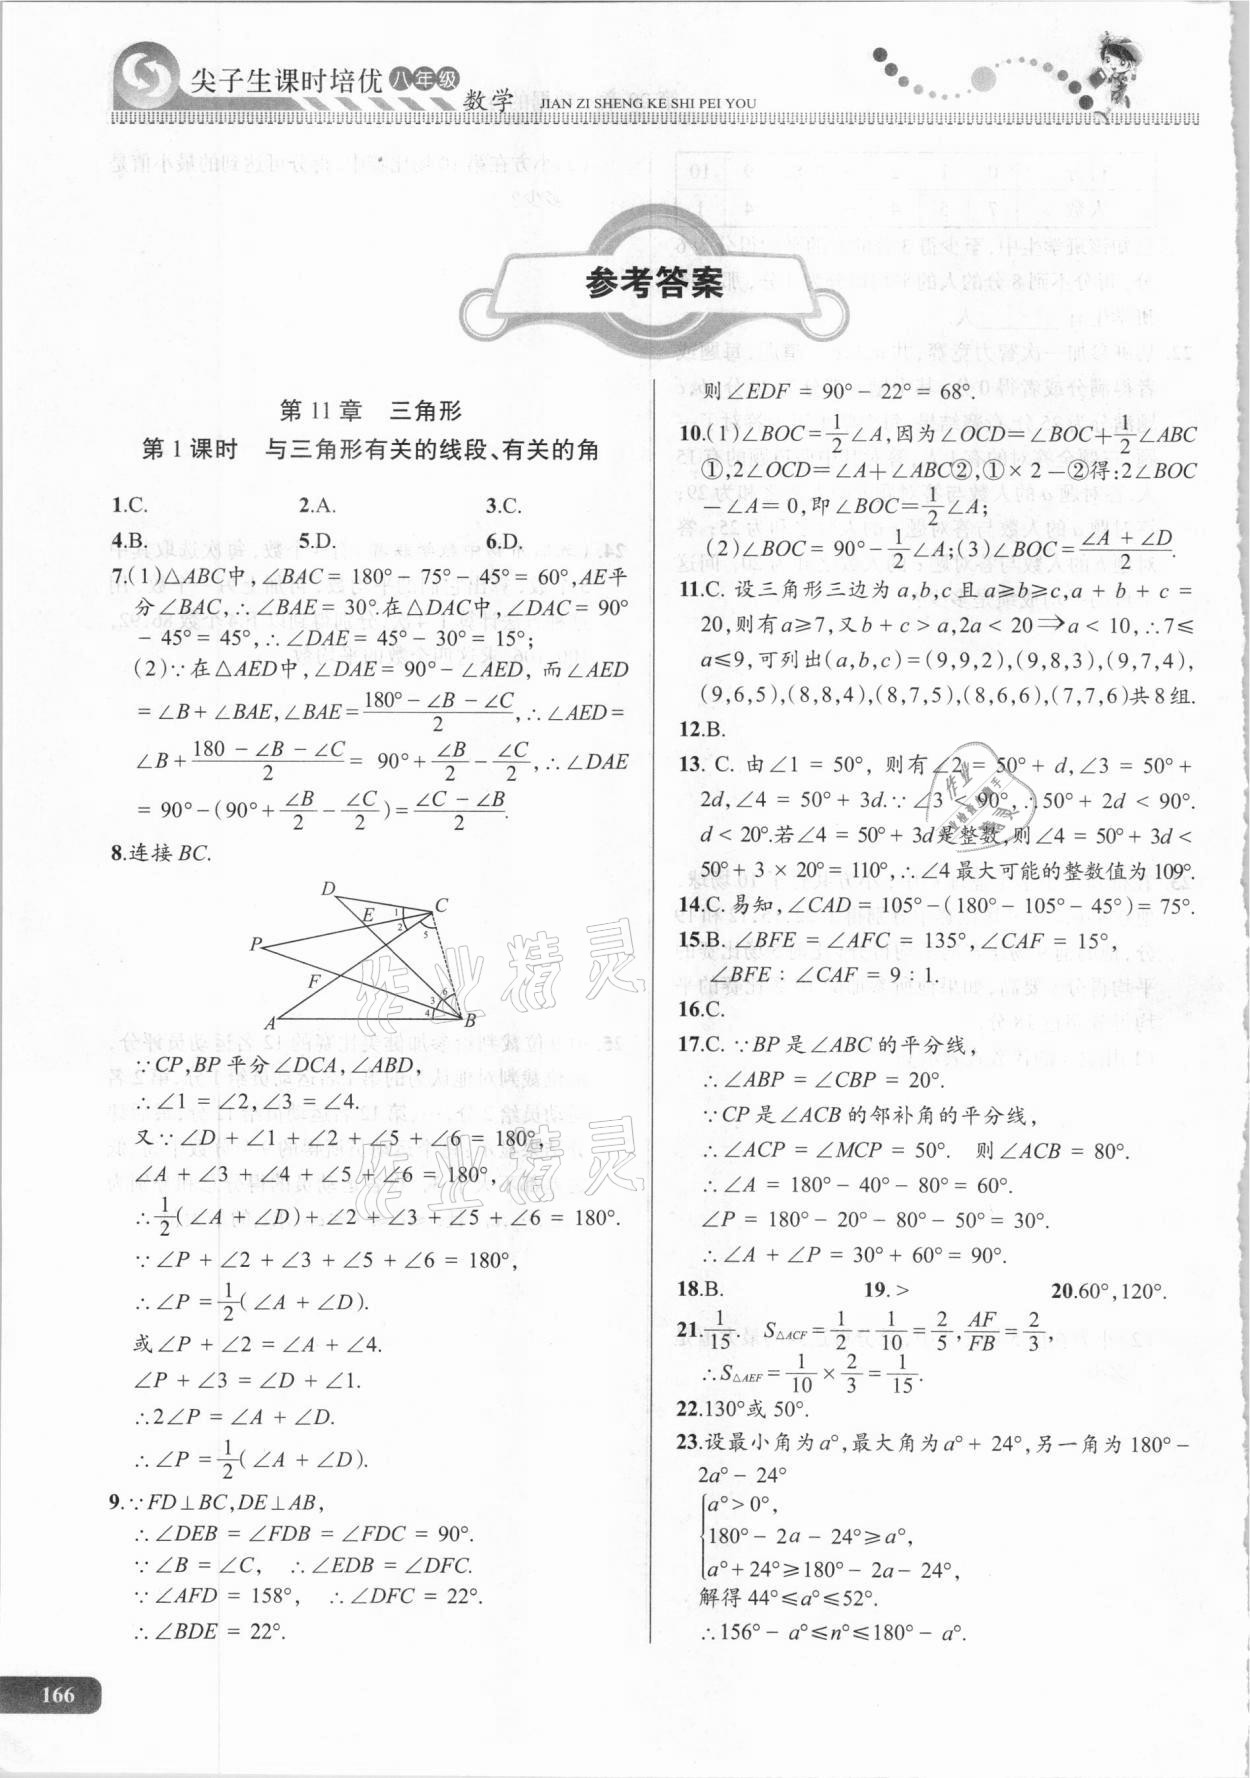 尖子生课时培优 八年级 数学 JIAN ZI SHENG KE SHI PEI YOU
参考答案
第 11 章 三角形
第 1 课时 与三角形有关的线段、有关的角
1.C. 2.A. 3.C.
4.B. 5.D. 6.D.
7.(1)△ABC中,∠BAC=180°-75°-45°=60°,AE平
分∠BAC,∴∠BAE=30°.在△DAC中,∠DAC=90°
-45°=45°,∴∠DAE=45°-30°=15°;
(2)∵在△AED中,∠DAE=90°-∠AED, 而∠AED
=∠B+∠BAE,∠BAE=(180°-∠B-∠C)/2,∴∠AED=
∠B+(180-∠B-∠C)/2=90°+∠B/2-∠C/2,∴∠DAE
=90°-(90°+∠B/2-∠C/2)=(∠C-∠B)/2.
8.连接BC.
D
E
1
C
2
5
P
F
6
3
4
A
B
∵CP,BP平分∠DCA,∠ABD,
∴∠1=∠2,∠3=∠4.
又∵∠D+∠1+∠2+∠5+∠6=180°,
∠A+∠3+∠4+∠5+∠6=180°,
∴1/2(∠A+∠D)+∠2+∠3+∠5+∠6=180°.
∵∠P+∠2+∠3+∠5+∠6=180°,
∴∠P=1/2(∠A+∠D).
或∠P+∠2=∠A+∠4.
∠P+∠3=∠D+∠1.
∴2∠P=∠A+∠D.
∴∠P=1/2(∠A+∠D).
9.∵FD⊥BC,DE⊥AB,
∴∠DEB=∠FDB=∠FDC=90°.
∵∠B=∠C, ∴∠EDB=∠DFC.
∵∠AFD=158°, ∴∠DFC=22°.
∴∠BDE=22°.
则∠EDF=90°-22°=68°.
10.(1)∠BOC=1/2∠A,因为∠OCD=∠BOC+1/2∠ABC
①,2∠OCD=∠A+∠ABC②,①×2-②得:2∠BOC
-∠A=0,即∠BOC=1/2∠A;
(2)∠BOC=90°-1/2∠A;(3)∠BOC=(∠A+∠D)/2.
11.C. 设三角形三边为a,b,c且a≥b≥c,a+b+c=
20,则有a≥7,又b+c>a,2a<20⇒a<10,∴7≤
a≤9,可列出(a,b,c)=(9,9,2),(9,8,3),(9,7,4),
(9,6,5),(8,8,4),(8,7,5),(8,6,6),(7,7,6)共8组.
12.B.
13. C. 由∠1=50°, 则有∠2=50°+d,∠3=50°+
2d,∠4=50°+3d.∵∠3<90°,∴50°+2d<90°.
d<20°.若∠4=50°+3d是整数,则∠4=50°+3d<
50°+3×20=110°,∴∠4最大可能的整数值为109°.
14.C.易知,∠CAD=105°-(180°-105°-45°)=75°.
15.B. ∠BFE=∠AFC=135°,∠CAF=15°,
∠BFE:∠CAF=9:1.
16.C.
17.C. ∵BP是∠ABC的平分线,
∴∠ABP=∠CBP=20°.
∵CP是∠ACB的邻补角的平分线,
∴∠ACP=∠MCP=50°. 则∠ACB=80°.
∴∠A=180°-40°-80°=60°.
∠P=180°-20°-80°-50°=30°.
∴∠A+∠P=30°+60°=90°.
18.B. 19.> 20.60°,120°.
21.1/15. S△ACF=1/2-1/10=2/5,AF/FB=2/3,
∴S△AEF=1/10×2/3=1/15.
22.130°或50°.
23.设最小角为a°,最大角为a°+24°,另一角为180°-
2a°-24°
a°>0°,
180°-2a-24°≥a°,
a°+24°≥180°-2a-24°,
解得44°≤a°≤52°.
∴156°-a°≤n°≤180°-a°.
166
作业精灵
作业精灵